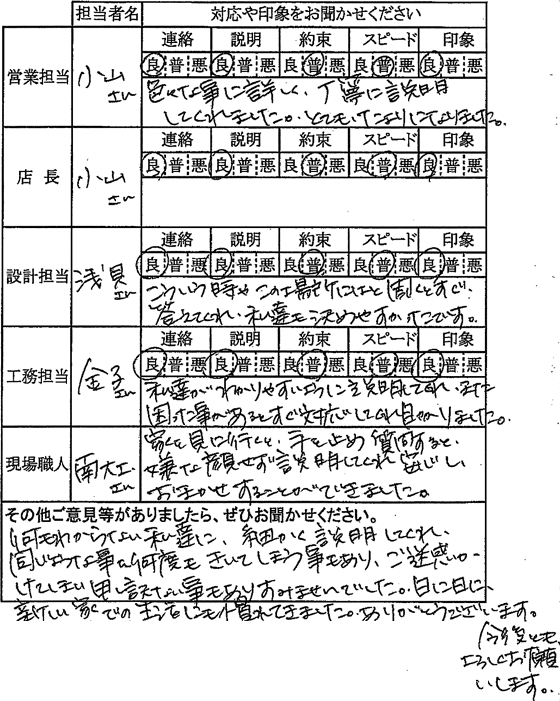 担当者名 対応や印象をお聞かせください
連絡 説明 約束 スピード 印象
営業担当 小山さん 良 普 悪 良 普 悪 良 普 悪 良 普 悪 良 普 悪
色々な事に詳しく、丁寧に説明
してくれました。とてもたよりになりました。
連絡 説明 約束 スピード 印象
店長 小山さん 良 普 悪 良 普 悪 良 普 悪 良 普 悪 良 普 悪
連絡 説明 約束 スピード 印象
設計担当 浅見さん 良 普 悪 良 普 悪 良 普 悪 良 普 悪 良 普 悪
こういう時やこの場所にはと聞くとすぐ
答えてくれ、私達も決めやすかったです。
連絡 説明 約束 スピード 印象
工務担当 金子さん 良 普 悪 良 普 悪 良 普 悪 良 普 悪 良 普 悪
私達がわかりやすいように説明してくれ、また
困った事があるとすぐ対応してくれ助かりました。
現場職人 南大工さん
家を見に行くと、手を止め質問すると、
嫌な顔せず説明してくれ安心し
おまかせすることができました。
その他ご意見等がありましたら、ぜひお聞かせください。
何もわからない私達に、細かく説明してくれ、
同じような事を何度もきいてしまう事もあり、ご迷惑か
けてしまい申し訳ない事もありすみませんでした。日に日に、
新しい家での生活にも慣れてきました。ありがとうございます。
今後とも
よろしくお願
いします。